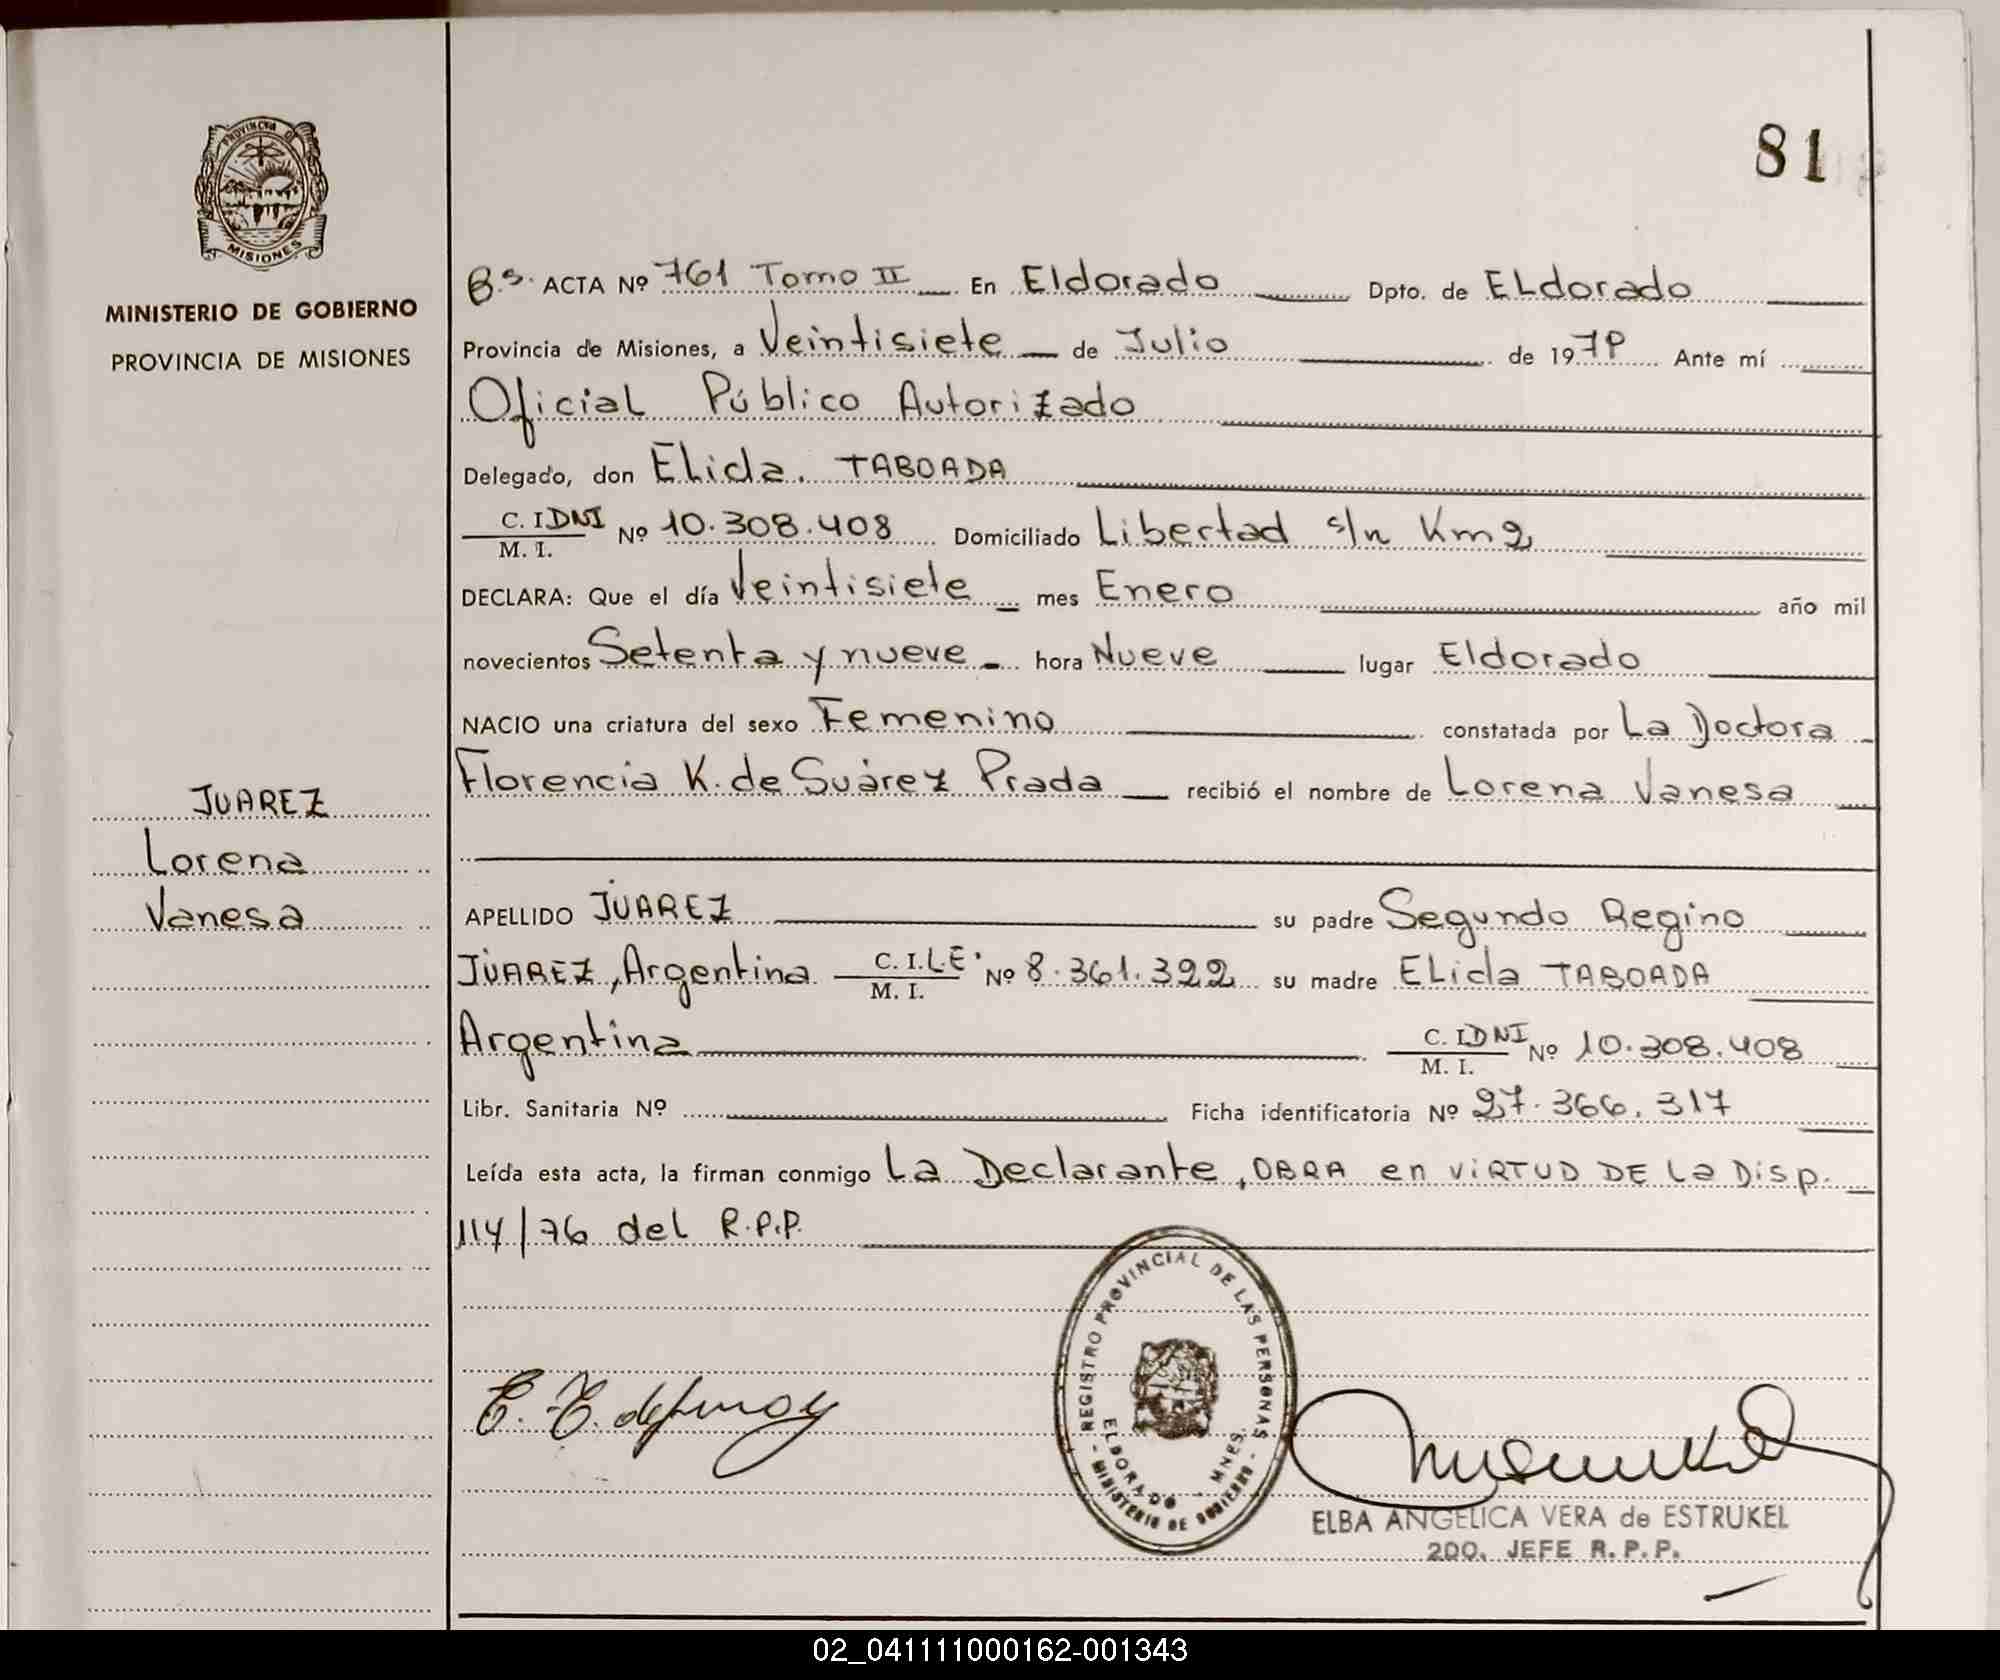 81
PROVINCIA DE
MISIONES
MINISTERIO DE GOBIERNO
PROVINCIA DE MISIONES
JUAREZ
Lorena
Vanesa
Bs. ACTA Nº 761 Tomo II En Eldorado Dpto. de ELdorado
Provincia de Misiones, a Veintisiete de Julio de 197 Ante mí
Oficial Público Autorizado
Delegado, don ELida. TABOADA
C. I DNI Nº 10.308.408 Domiciliado Libertad s/n Km 2
M. I.
DECLARA: Que el día Veintisiete mes Enero año mil
novecientos Setenta y nueve hora Nueve lugar Eldorado
NACIO una criatura del sexo Femenino constatada por La Doctora
Florencia K. de Suárez Prada recibió el nombre de Lorena Vanesa
APELLIDO JUAREZ su padre Segundo Regino
JUAREZ, Argentina C. I. L.E. Nº 8.361.322 su madre ELida TABOADA
M. I.
Argentina C. I DNI Nº 10.308.408
M. I.
Libr. Sanitaria Nº Ficha identificatoria Nº 27.366.317
Leída esta acta, la firman conmigo La Declarante, OBRA en ViRTUD DE La Disp.
114/76 del R.P.P.
REGISTRO PROVINCIAL DE LAS PERSONAS
ELDORADO - MNES.
- MINISTERIO DE GOBIERNO -
ELBA ANGELICA VERA de ESTRUKEL
2DO. JEFE R. P. P.
02_041111000162-001343